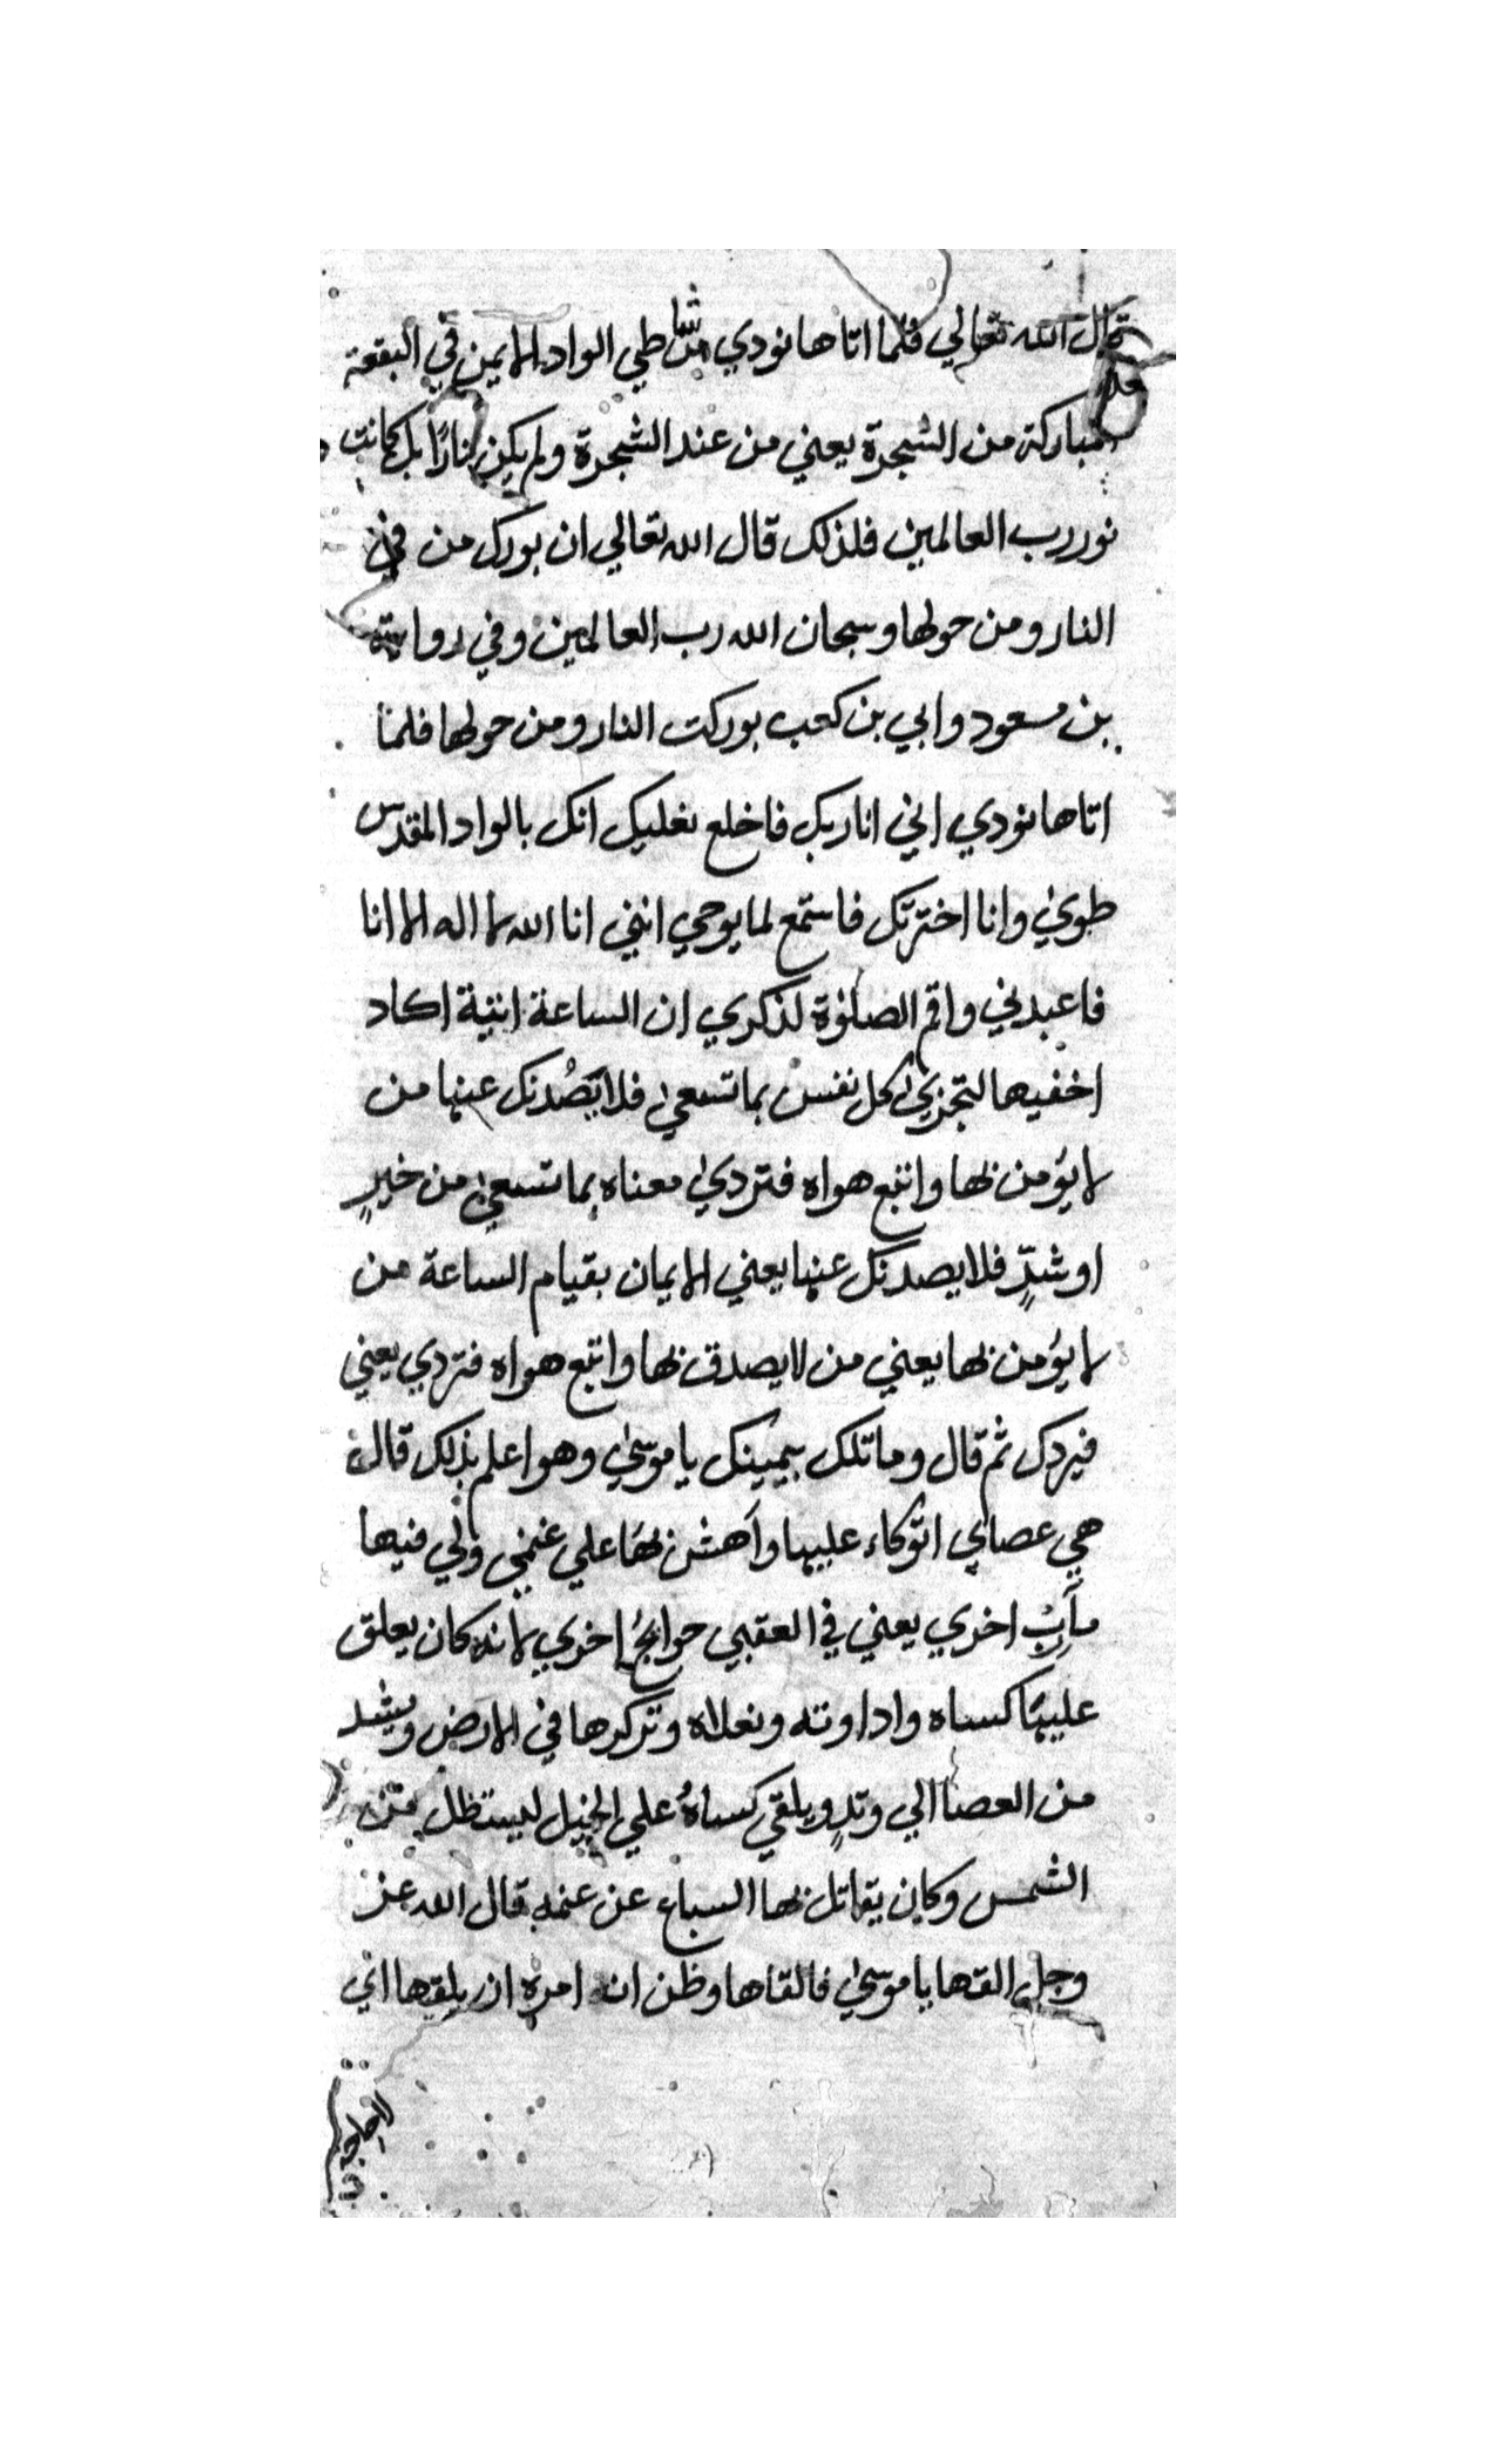 قال الله تعالي فلما اتاها نودي من شاطي الواد الايمن في البقعة
المباركة من الشجرة يعني من عند الشجرة ولم يكن نارًا بل كانت
نور رب العالمين فلذلك قال الله تعالي ان بورك من في
النار ومن حولها وسبحان الله رب العالمين وفي رواية
بن مسعود وابي بن كعب بوركت النار ومن حولها فلما
اتاها نودي اني انا ربك فاخلع نعليك انك بالواد المقدس
طوي وانا اخترتك فاستمع لما يوحي انني انا الله لا اله الا انا
فاعبدني واقم الصلوة لذكري ان الساعة اتية اكاد
اخفيها لتجزي كل نفس بما تسعي فلا يَصُدنك عنها من
لا يؤمن بها واتبع هواه فتردي معناه بما تسعي من خيرٍ
او شرٍّ فلا يصدنك عنها يعني الايمان بقيام الساعة من
لا يؤمن بها يعني من لا يصدق بها واتبع هواه فتردي يعني
فيردك ثم قال وما تلك بيمينك يا موسي وهو اعلم بذلك قال
هي عصاي اتوكاء عليها وأهش بها علي غنمي ولي فيها
مأربُ اخري يعني في العقبي حوايجُ اخري لانه كان يعلق
عليها كساه واداوته ونعلاه وتركزها في الارض ويشد
من العصا الي وتدٍ ويلقي كساهُ علي الحبل ليستظل من
الشمس وكان يقاتل بها السباع عن غنمه قال الله عز
وجل القها يا موسي فالقاها وظن انه امره ان يلقها اني